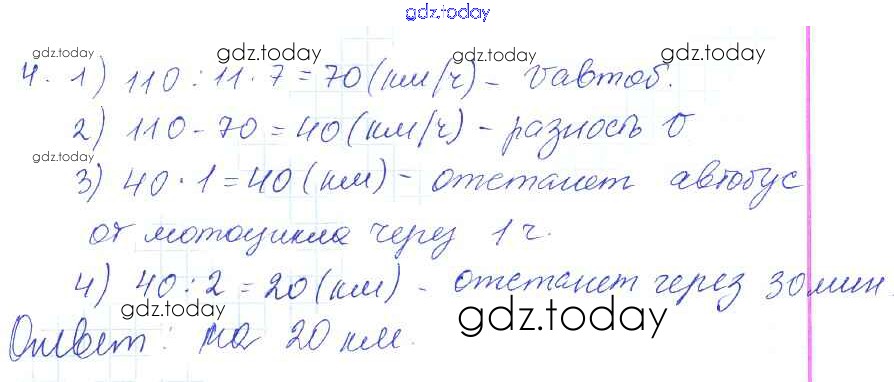 gdz.today
gdz.today gdz.today gdz.today
4. 1) 110 : 11 · 7 = 70 (км/ч) – v автоб.
2) 110 - 70 = 40 (км/ч) – разность v
gdz.today
3) 40 · 1 = 40 (км) – отстанет автобус
от мотоцикла через 1 ч.
4) 40 : 2 = 20 (км) – отстанет через 30 мин.
gdz.today gdz.today
Ответ: на 20 км.